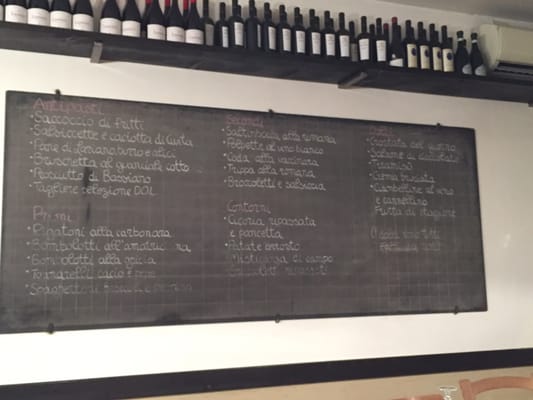 Antipasti
• Saccoccio di fritti
• Salsiccette e
• Pane di Lariano, burro e alici
• Bruschetta al guanciale cotto
• Prosciutto di Bassiano
• Tagliere selezione DOL
Primi
• Rigatoni alla carbonara
• Bombolotti all'amatric na
• Bombolotti alla gricia
• Tonnarelli cacio e pepe
• Spaghettoni
Secondi
• Saltimbocca alla romana
• Polpette al vino bianco
• Coda alla vaccinara
• Trippa alla romana
• Broccoletti e salsiccia
Contorni
• Cicoria ripassata
e pancetta
• Patate
• Misticanza di campo
• ripassati
Dolci
• Crostata del giorno
• Salame di cioccolato
• Tiramisù
• Crema bruciata
• Ciambelline al vino
e cannellino
• Frutta di stagione